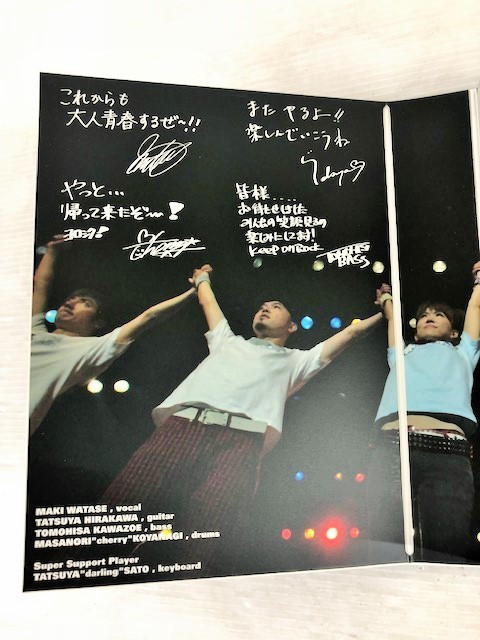 これからも
大人青春するぜ〜!!
また やるよ!!
楽しんでいこうね
やっと...
帰って来たぞ〜!
ヨロシク!
皆様....
お待たせしました
みんなの笑顔見るの
楽しみにしてます!
Keep on Rock
BASS
MAKI WATASE , vocal
TATSUYA HIRAKAWA , guitar
TOMOHISA KAWAZOE , bass
MASANORI"cherry"KOYANAGI , drums
Super Support Player
TATSUYA"darling"SATO , keyboard